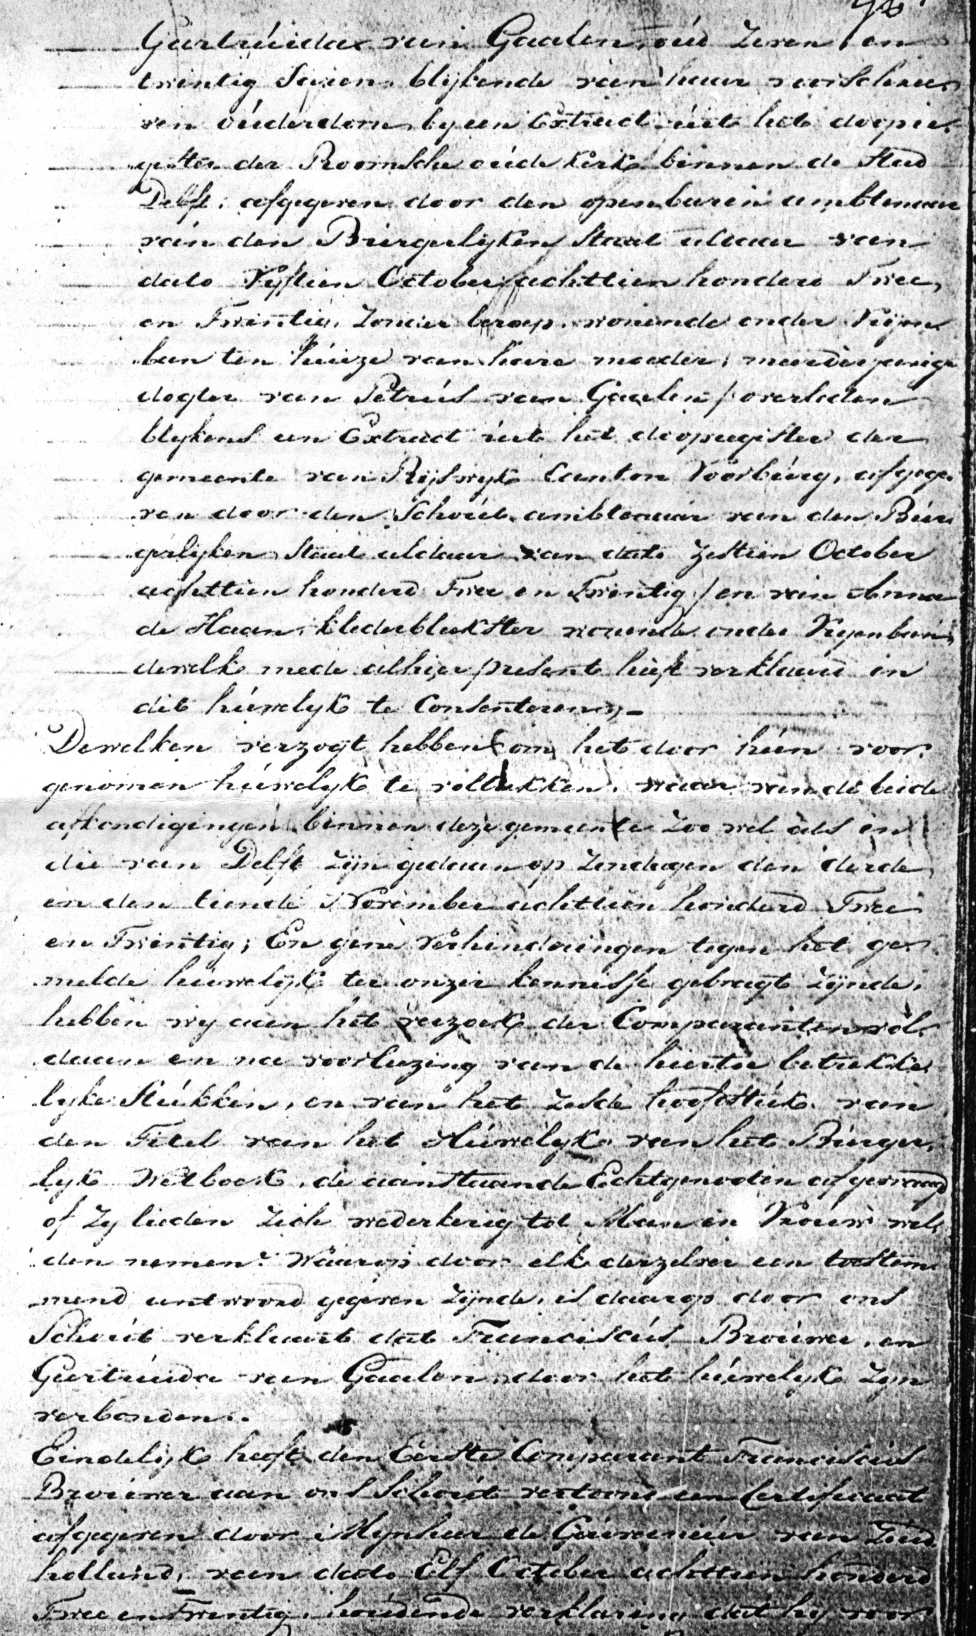 Geertruida van Gaalen, oud Zeven en
twintig Jaren, blijkende van haar voorschree
ven ouderdom, by een Extract uit het doopre
gister der Roomsche oude kerk binnen de Stad
Delft, afgegeven door den openbaren ambtenaar
van den Burgerlyken Staat aldaar van
dato Vyftien October achttien honderd Twee
en Twintig, Zonder beroep, wonende onder Vryen
ban ten huize van hare moeder, meerderjarige
dogter van Petrus van Gaalen / overleden
blykens een Extract uit het doopregister der
gemeente van Rijswyk Canton Voorburg, afgege
ven door den Schout, ambtenaar van den Bur
gerlyken Staat aldaar van dato Zestien October
achttien honderd Twee en Twintig / en van Anna
de Haan, kleederbleekster wonende onder Vryenban,
dewelke mede alhier present heeft verklaard in
dit huwelyk te Consenteren,
Dewelken verzogt hebben om het door hun voor
genomen huwelyk te voltrekken, waar van de beide
afkondigingen binnen deze gemeente zoo wel als in
die van Delft Zijn gedaan op Zondagen den derde
en den tiende November achttien honderd Twee
en Twintig; En gene Verhinderingen tegen het ge
melde huwelijk te onzer kennisse gebragt Zijnde,
hebben wy aan het verzoek der Comparanten vol
daan en na voorlezing van de hiertoe betrekke
lyke Stukken, en van het Zesde hoofdstuk van
den Titel van het Huwelyk van het Burger
lyk Wetboek, de aanstaande Echtgenooten afgevraagd
of Zy lieden Zich wederkerig tot Man en Vrouw wil
den nemen? Waarop door elk derzelver een toestem
mend antwoord gegeven Zijnde, is daarop door ons
Schout verklaart dat Franciscus Brouwer, en
Geertruida van Gaalen, door het huwelyk Zyn
verbonden.
Eindelijk heeft den Eerste Comparant Franciscus
Brouwer aan ons Schout vertoond een Certificaat
afgegeven door Mynheer de Gouverneur van Zuid
holland, van dato Elf October achttien honderd
Twee en Twintig, houdende verklaring dat hij voor